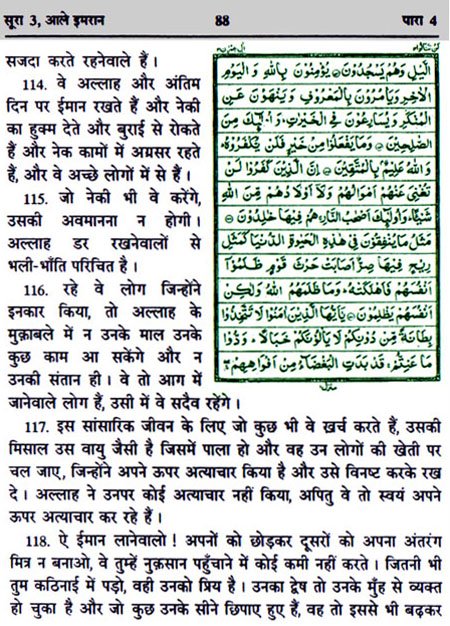 सूरा 3, आले इमरान 88 पारा 4
सजदा करते रहनेवाले हैं।
114. वे अल्लाह और अंतिम
दिन पर ईमान रखते हैं और नेकी
का हुक्म देते और बुराई से रोकते
हैं और नेक कामों में अग्रसर रहते
हैं, और वे अच्छे लोगों में से हैं।
115. जो नेकी भी वे करेंगे,
उसकी अवमानना न होगी।
अल्लाह डर रखनेवालों से
भली-भाँति परिचित है।
116. रहे वे लोग जिन्होंने
इनकार किया, तो अल्लाह के
मुक़ाबले में न उनके माल उनके
कुछ काम आ सकेंगे और न
उनकी संतान ही। वे तो आग में
जानेवाले लोग हैं, उसी में वे सदैव रहेंगे।
الَّيْلِ وَهُمْ يَسْجُدُوْنَ ۝ يُؤْمِنُوْنَ بِاللّٰهِ وَالْيَوْمِ
الْاٰخِرِ وَيَاْمُرُوْنَ بِالْمَعْرُوْفِ وَيَنْهَوْنَ عَنِ
الْمُنْكَرِ وَيُسَارِعُوْنَ فِي الْخَيْرٰتِ وَاُولٰٓئِكَ مِنَ
الصّٰلِحِيْنَ ۝ وَمَا يَفْعَلُوْا مِنْ خَيْرٍ فَلَنْ يُّكْفَرُوْهُ
وَاللّٰهُ عَلِيْمٌۢ بِالْمُتَّقِيْنَ ۝ اِنَّ الَّذِيْنَ كَفَرُوْا لَنْ
تُغْنِيَ عَنْهُمْ اَمْوَالُهُمْ وَلَآ اَوْلَادُهُمْ مِّنَ اللّٰهِ
شَيْئًا وَاُولٰٓئِكَ اَصْحٰبُ النَّارِ هُمْ فِيْهَا خٰلِدُوْنَ ۝
مَثَلُ مَا يُنْفِقُوْنَ فِيْ هٰذِهِ الْحَيٰوةِ الدُّنْيَا كَمَثَلِ
رِيْحٍ فِيْهَا صِرٌّ اَصَابَتْ حَرْثَ قَوْمٍ ظَلَمُوْٓا
اَنْفُسَهُمْ فَاَهْلَكَتْهُ وَمَا ظَلَمَهُمُ اللّٰهُ وَلٰكِنْ
اَنْفُسَهُمْ يَظْلِمُوْنَ ۝ يٰٓاَيُّهَا الَّذِيْنَ اٰمَنُوْا لَا تَتَّخِذُوْا
بِطَانَةً مِّنْ دُوْنِكُمْ لَا يَاْلُوْنَكُمْ خَبَالًا وَدُّوْا
مَا عَنِتُّمْ قَدْ بَدَتِ الْبَغْضَآءُ مِنْ اَفْوَاهِهِمْ
117. इस सांसारिक जीवन के लिए जो कुछ भी वे ख़र्च करते हैं, उसकी
मिसाल उस वायु जैसी है जिसमें पाला हो और वह उन लोगों की खेती पर
चल जाए, जिन्होंने अपने ऊपर अत्याचार किया है और उसे विनष्ट करके रख
दे। अल्लाह ने उनपर कोई अत्याचार नहीं किया, अपितु वे तो स्वयं अपने
ऊपर अत्याचार कर रहे हैं।
118. ऐ ईमान लानेवालो! अपनों को छोड़कर दूसरों को अपना अंतरंग
मित्र न बनाओ, वे तुम्हें नुक़सान पहुँचाने में कोई कमी नहीं करते। जितनी भी
तुम कठिनाई में पड़ो, वही उनको प्रिय है। उनका द्वेष तो उनके मुँह से व्यक्त
हो चुका है और जो कुछ उनके सीने छिपाए हुए हैं, वह तो इससे भी बढ़कर